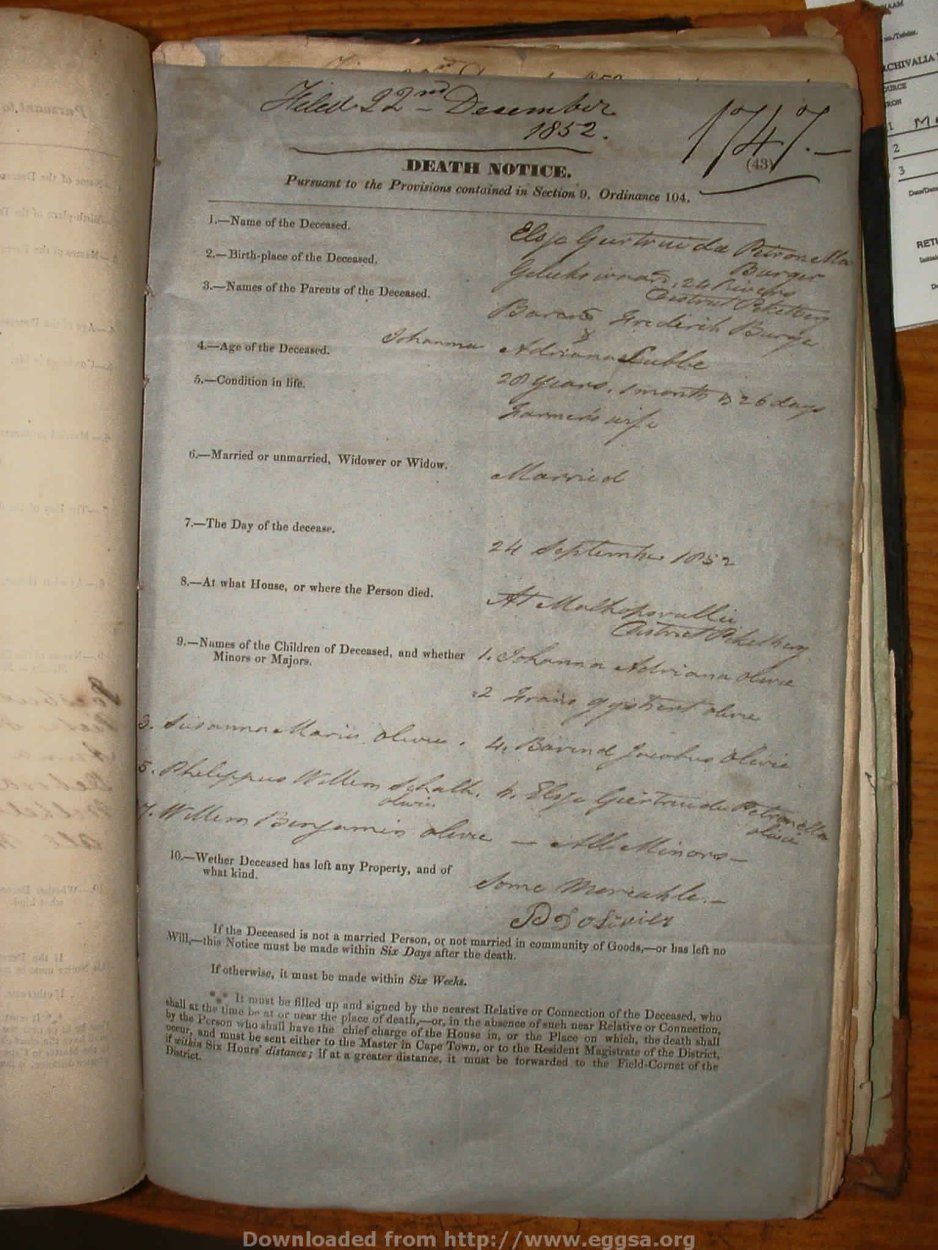 Filed 22nd December
1852.
1747.
(43)
DEATH NOTICE.
Pursuant to the Provisions contained in Section 9, Ordinance 104.
1.—Name of the Deceased.
Elsje Geertruida Petronella
Burger
2.—Birth-place of the Deceased.
24 Rivers
District Piketberg
3.—Names of the Parents of the Deceased.
Barend Frederik Burger
&
Johanna Adriana Lubbe
4.—Age of the Deceased.
28 years, 1 month & 26 days
5.—Condition in life.
Farmer's wife
6.—Married or unmarried, Widower or Widow.
Married
7.—The Day of the decease.
24 September 1852
8.—At what House, or where the Person died.
At
District Piketberg
9.—Names of the Children of Deceased, and whether
Minors or Majors.
1. Johanna Adriana Olivie
2 Frans Olivie
3. Susanna Maria Olivie. 4. Barend Jacobus Olivie
5. Philippus Willem Schalk. 6. Elsje Geertruida Petronella
Olivie
Olivie
7. Willem Benjamin Olivie — All Minors —
10.—Wether Deceased has left any Property, and of
what kind.
Some Moveable. —
If the Deceased is not a married Person, or not married in community of Goods,—or has left no
Will,—this Notice must be made within Six Days after the death.
If otherwise, it must be made within Six Weeks.
*** It must be filled up and signed by the nearest Relative or Connection of the Deceased, who
shall at the time be at or near the place of death,—or, in the absence of such near Relative or Connection,
by the Person who shall have the chief charge of the House in, or the Place on which, the death shall
occur, and must be sent either to the Master in Cape Town, or to the Resident Magistrate of the District,
if within Six Hours' distance; if at a greater distance, it must be forwarded to the Field-Cornet of the
District.
Downloaded from http://www.eggsa.org